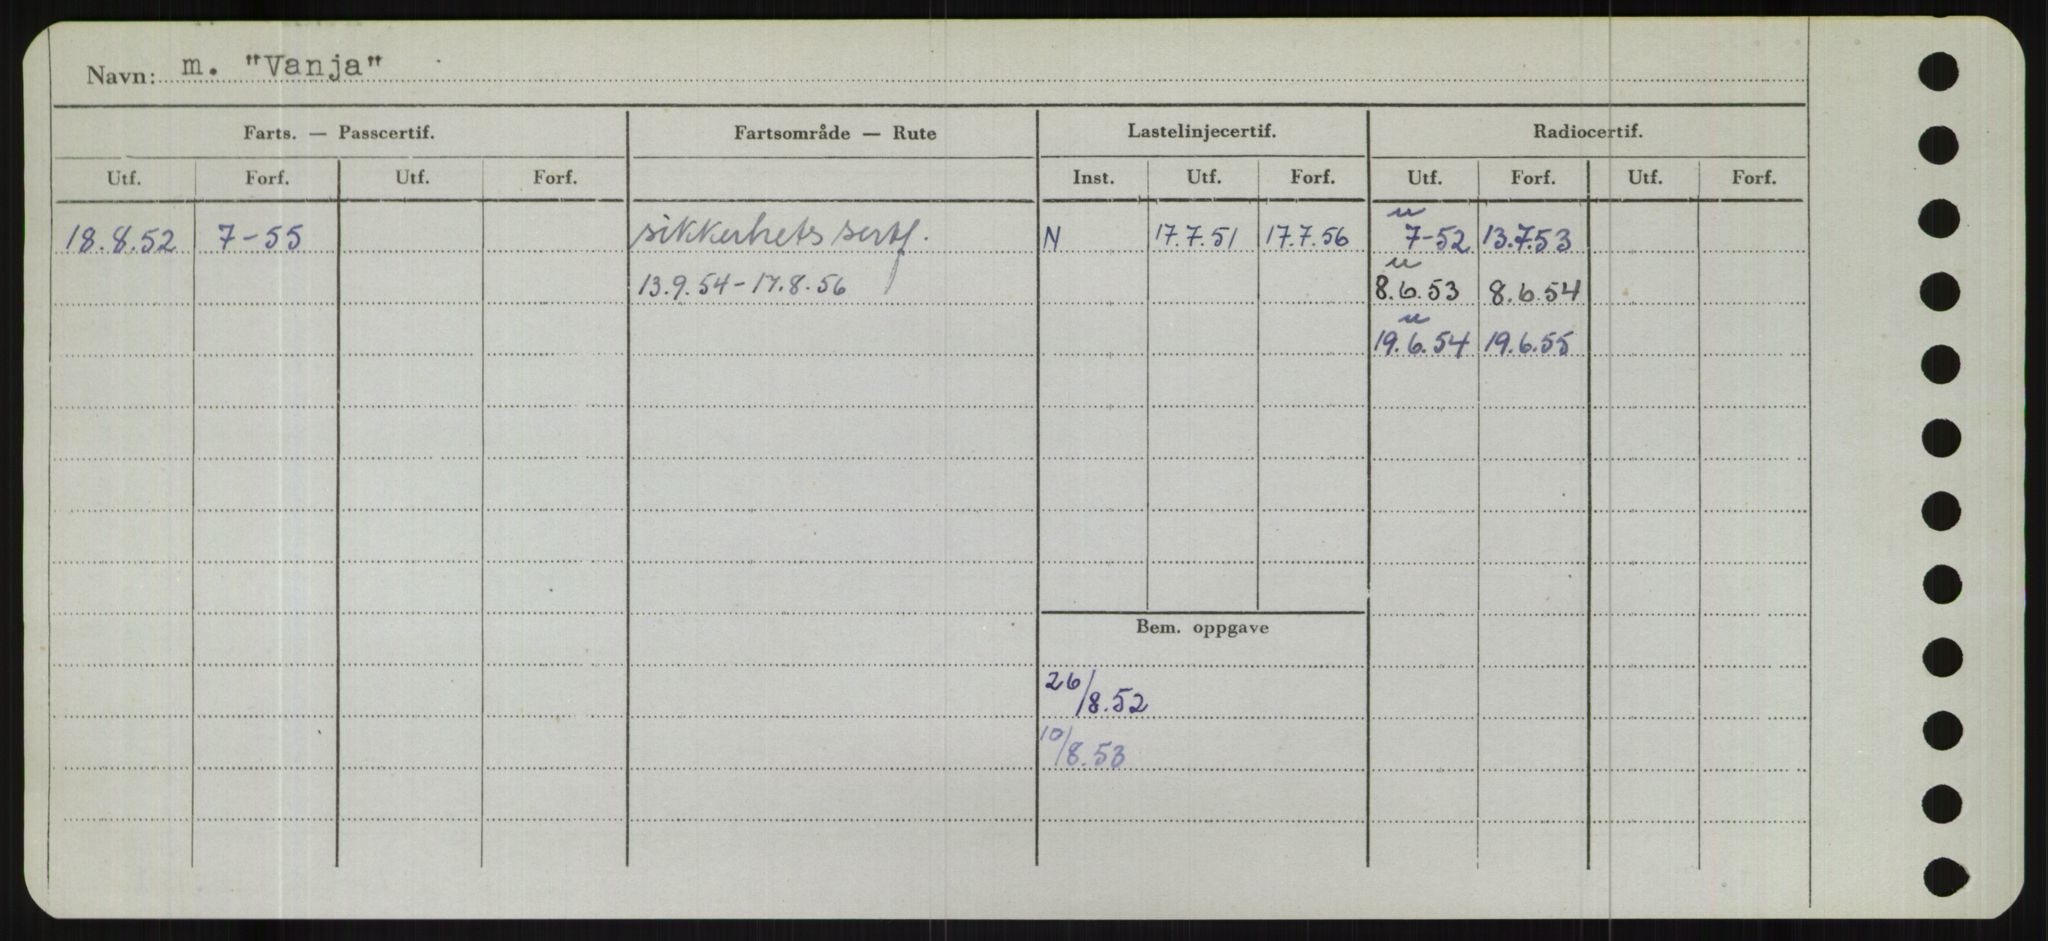 Navn: m. "Vanja"
Farts. — Passcertif. Fartsområde — Rute Lastelinjecertif. Radiocertif.
Utf. Forf. Utf. Forf. Inst. Utf. Forf. Utf. Forf. Utf. Forf.
18.8.52 7-55 sikkerhets sertf. N 17.7.51 17.7.56 7-52 13.7.53
13.9.54-17.8.56 8.6.53 8.6.54
19.6.54 19.6.55
Bem. oppgave
26/8.52
10/8.53